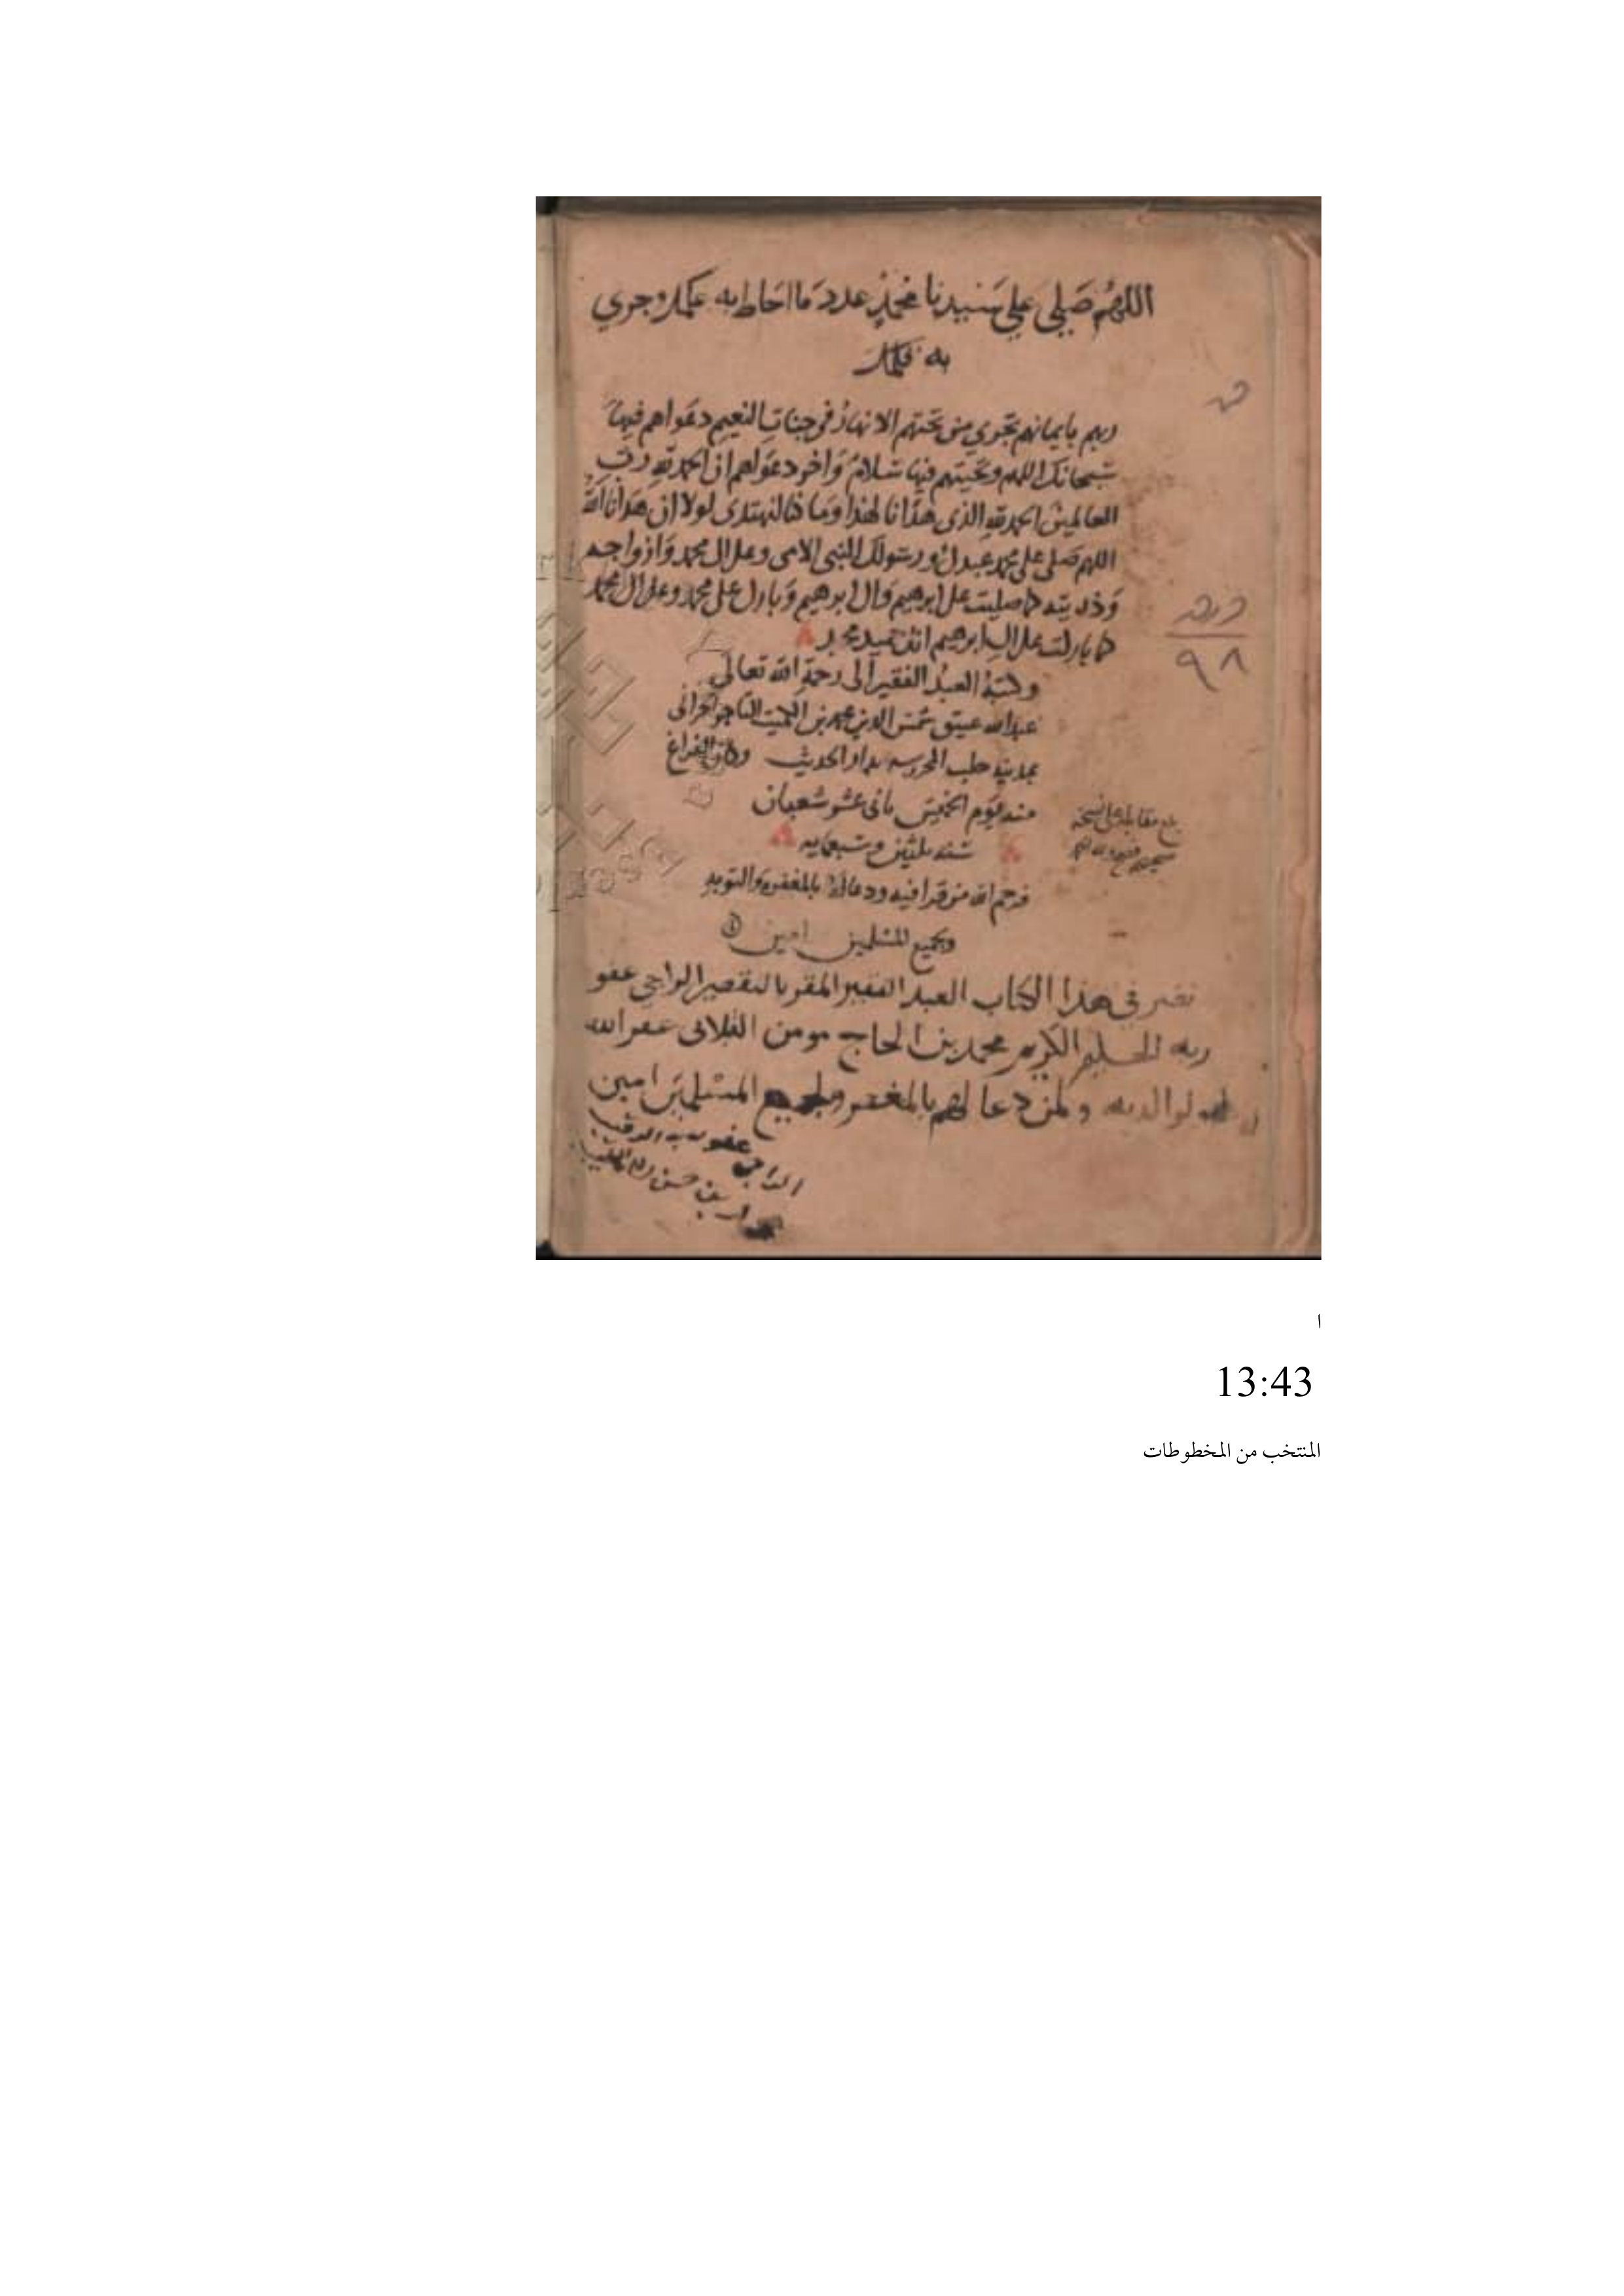 اللهم صلي علي سيدنا محمد عدد ما احاط به علمك وجري
به قلمك
ربهم بايمانهم تجري من تحتهم الانهار في جنات النعيم دعواهم فيها
سبحانك اللهم وتحيتهم فيها سلام واخر دعواهم ان الحمد لله رب
العالمين الحمد لله الذي هدانا لهذا وما كنا لنهتدي لولا ان هدانا الله
اللهم صلي على محمد عبدك ورسولك النبي الامي وعلى ال محمد وازواجه
وذريته كما صليت على ابرهيم وال ابرهيم وبارك على محمد وعلى ال محمد
كما باركت على ال ابرهيم انك حميد مجيد
وكتبه العبد الفقير الى رحمة الله تعالى
عبد الله عتيق شمس الدين محمد بن التاجر الحراني
بمدينة حلب المحروسه بدار الحديث وكان الفراغ
منه يوم الخميس ثاني عشر شعبان
سنه ثلثين وسبعمايه
بلغ مقابلة على نسخة
صحيحة
فرحم الله من قرا فيه ودعا له بالمغفره والتوبه
ولجميع المسلمين امين
٩٨
نضر في هذا الكتاب العبد الفقير المقر بالتقصير الراجي عفو
ربه الحليم الكريم محمد بن الحاج مومن الفلاني غفر الله
له ولوالديه ولمن دعا لهم بالمغفره ولجميع المسلمين امين
الراجي عفو
بن حسن
ا
13:43
المنتخب من المخطوطات